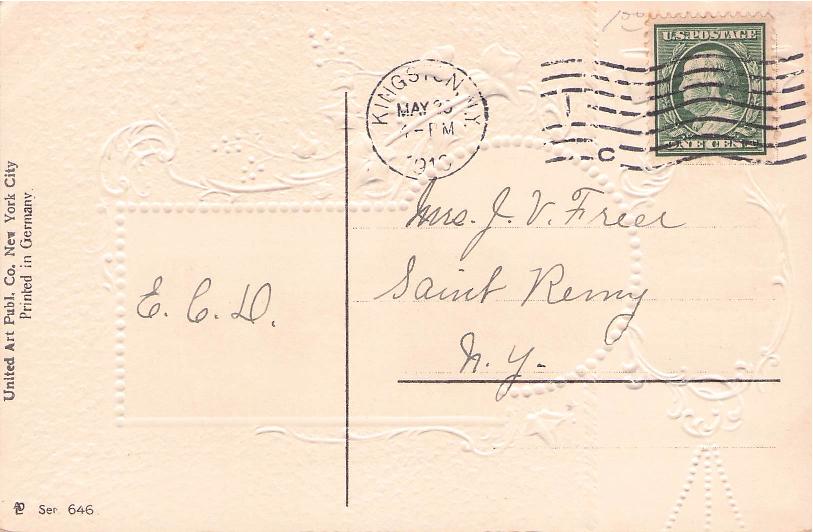 U.S. POSTAGE
ONE CENT
KINGSTON, N.Y.
MAY
PM
C
Mrs. J. V. Freer
Saint Remy
N. Y.
E. C. D.
United Art Publ. Co. New York City
Printed in Germany.
Ser 646